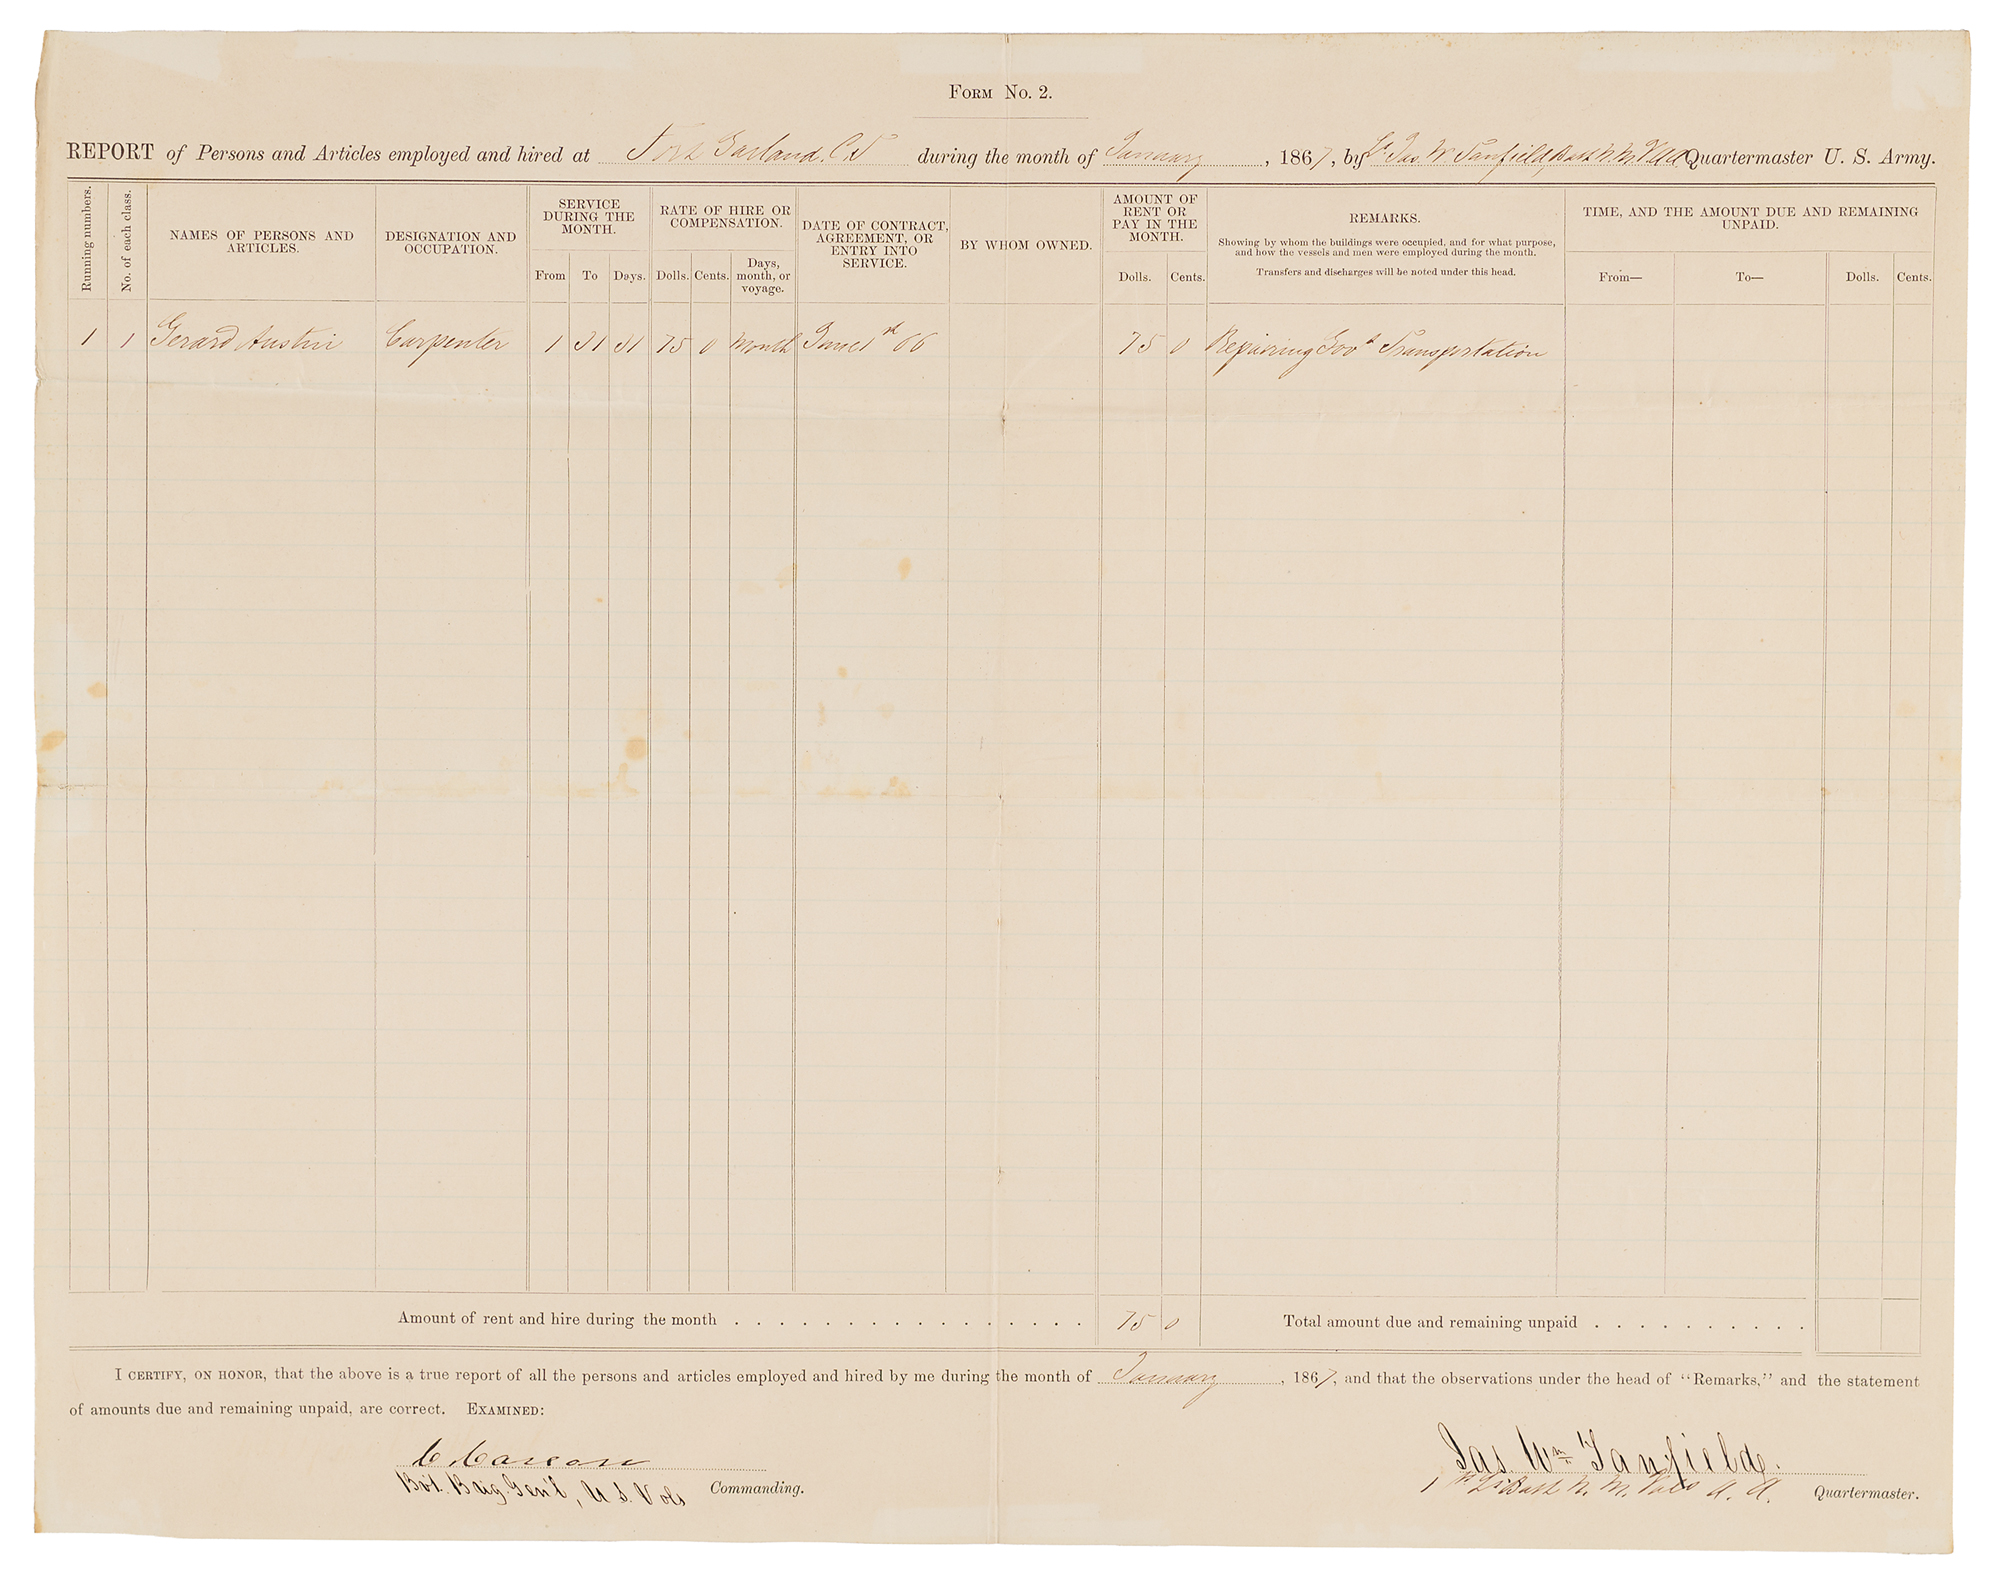 FORM No. 2.
REPORT of Persons and Articles employed and hired at Fort Garland, C.T during the month of January, 1867, by Lt Jas. W. Tanfield, Batt N. M. Vols A A Quartermaster U. S. Army.
Running numbers.
No. of each class.
NAMES OF PERSONS AND ARTICLES.
DESIGNATION AND OCCUPATION.
SERVICE DURING THE MONTH.
From To Days.
RATE OF HIRE OR COMPENSATION.
Dolls. Cents. Days, month, or voyage.
DATE OF CONTRACT, AGREEMENT, OR ENTRY INTO SERVICE.
BY WHOM OWNED.
AMOUNT OF RENT OR PAY IN THE MONTH.
Dolls. Cents.
REMARKS.
Showing by whom the buildings were occupied, and for what purpose, and how the vessels and men were employed during the month.
Transfers and discharges will be noted under this head.
TIME, AND THE AMOUNT DUE AND REMAINING UNPAID.
From— To— Dolls. Cents.
1 1 Gerard Austin Carpenter 1 31 31 75 0 Month June 1st 66 75 0 Repairing Govt Transportation
Amount of rent and hire during the month . . . . . . . . . . . . . . . . 75 0 Total amount due and remaining unpaid . . . . . . . . . .
I CERTIFY, ON HONOR, that the above is a true report of all the persons and articles employed and hired by me during the month of January, 1867, and that the observations under the head of "Remarks," and the statement
of amounts due and remaining unpaid, are correct. EXAMINED:
C Carson
Bvt. Brig. Gen'l, U S. Vols Commanding.
Jas Wm Tanfielde.
1st Lt Batt N. M. Vols A. A. Quartermaster.